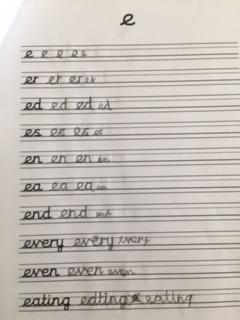 e
e e e e e
er er er er
ed ed ed ed
es es es es
en en en en
ea ea ea ea
end end end
every every every
even even even
eating edting eating